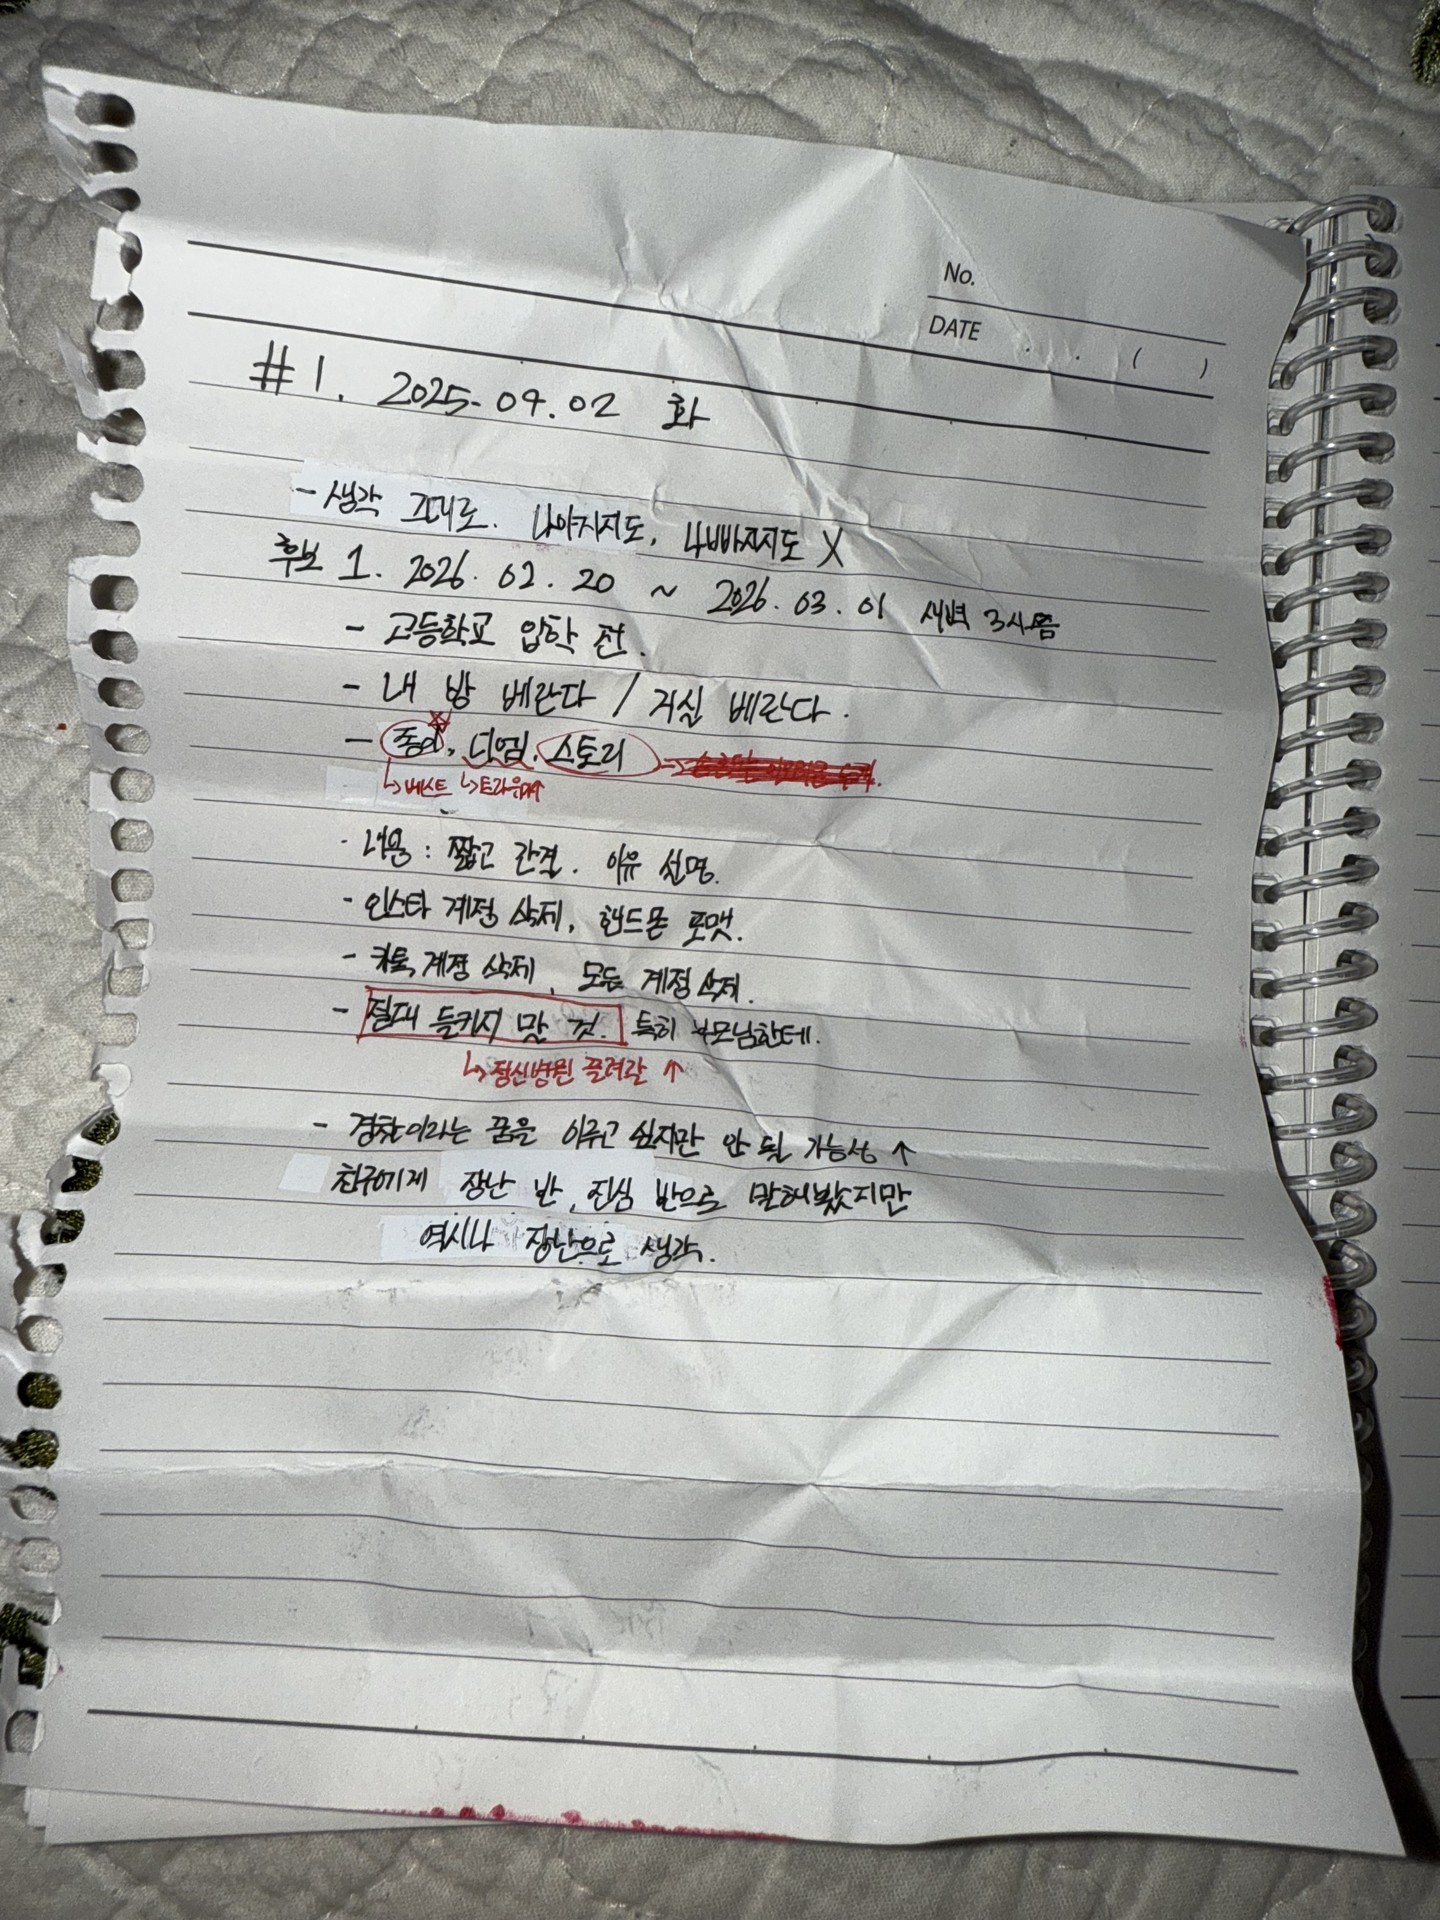 No.
DATE . . ( )
#1. 2025-09.02 화
- 생각 그대로. 나아지지도, 나빠지지도 X
후보 1. 2026.02.20 ~ 2026.03.01 새벽 3시쯤
- 고등학교 입학 전.
- 내 방 베란다 / 거실 베란다.
- 종이, 디엠, 스토리 →
↳ 베스트 ↳ 트라우마↑
· 내용 : 짧고 간결. 이유 선명.
- 인스타 계정 삭제, 핸드폰 포맷.
- 카톡 계정 삭제, 모든 계정 삭제.
- 절대 들키지 말 것. 특히 부모님한테.
↳ 정신병원 끌려감 ↑
- 경찰이라는 꿈을 이루고 싶지만 안 될 가능성 ↑
친구에게 장난 반, 진심 반으로 말해봤지만
역시나 장난으로 생각.